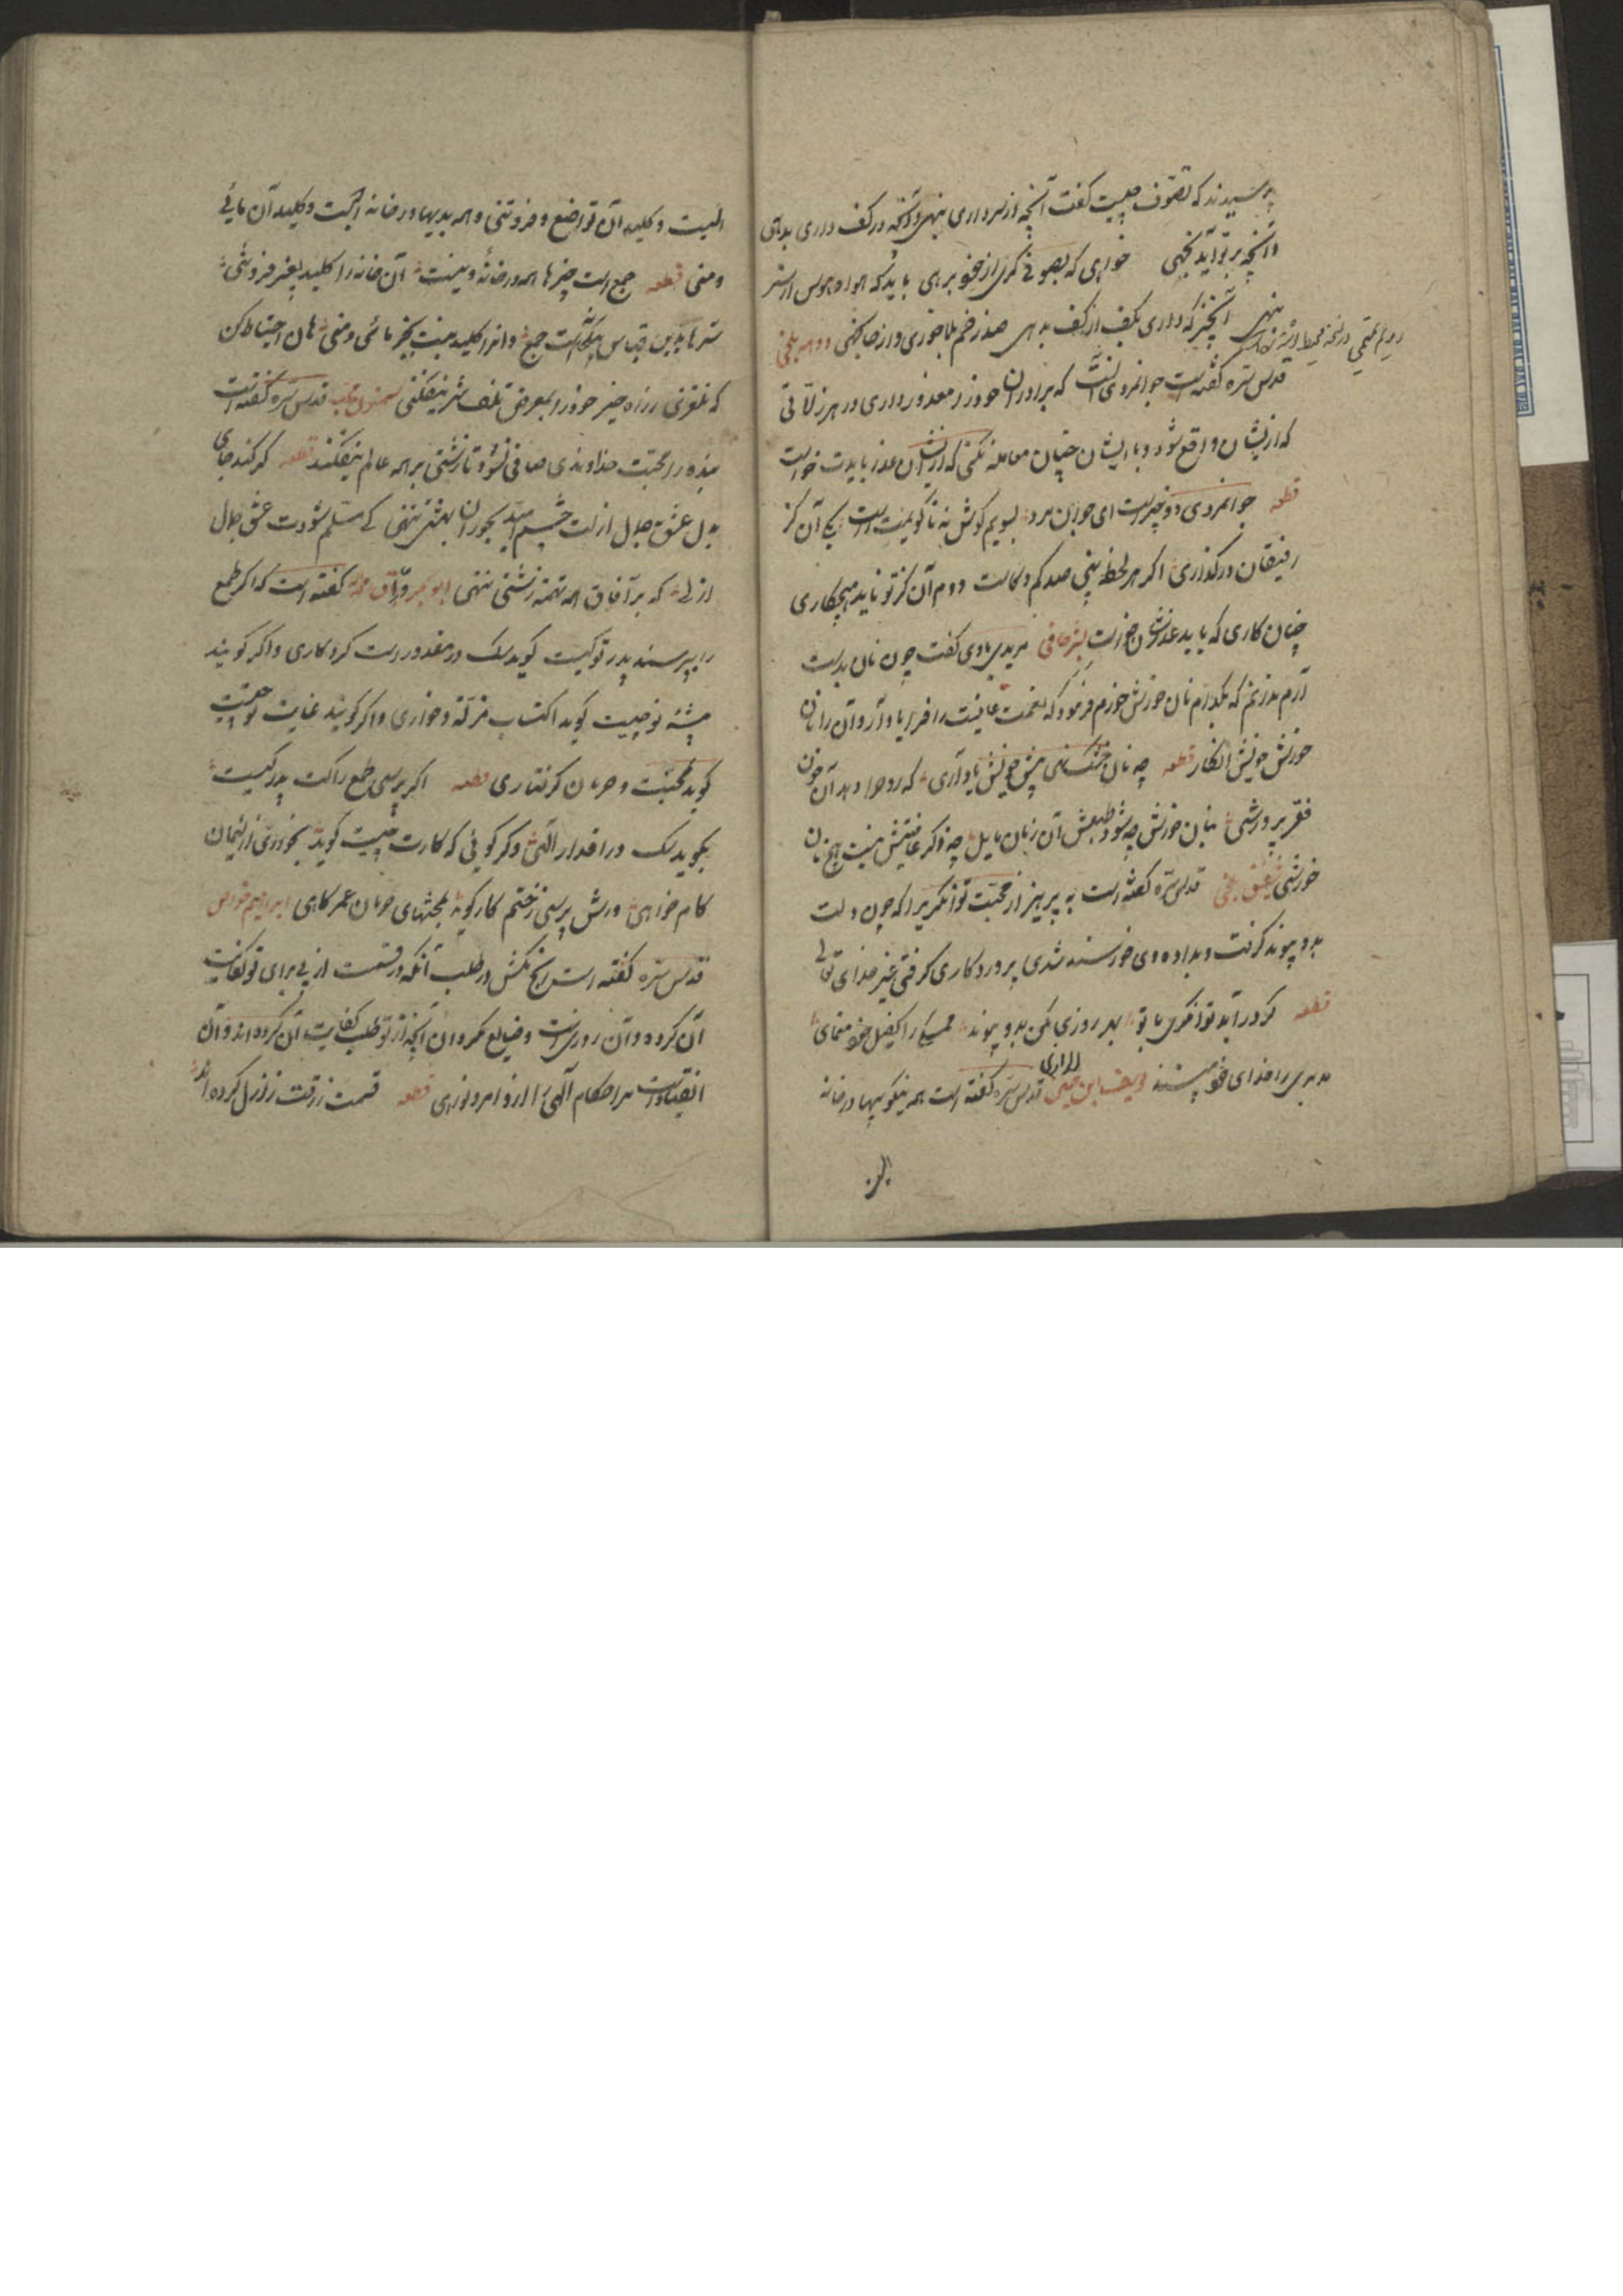 پرسیدند که تصوف چیست گفت آنچه در سر داری بنهی و آنچه در کف داری بدهی
و آنچه بر تو آید نجهی خواهی که بصوفی گری از خود برهی باید که هوا و هوس از سر
بنهی و آن چیز که داری بکف از کف بدهی صد زخم بلا خوری و از جا نجهی
قدس سره گفته است جوانمردی آنست که برادران خود را معذور داری در هر زلاتی
که از ایشان واقع شود و با ایشان چنان معامله نکنی که از ایشان عذر بایدت خواست
قطعه جوانمردی دو چیز است ای جوانمرد بسویم گوش نه تا گویمت راست یکی آن کز
رفیقان درگذاری اگر هر لحظه بینی صد کم و کاست دوم آن کز تو ناید هیچ کاری
چنان کاری که باید عذر آن خواست بشر حافی مریدی با وی گفت چون نان بدست
آرم ندانم که بکدام نان خورش خورم فرمود که نعمت عافیت را فرا یاد آر و آن را نان
خورش خویش انگار قطعه چو نان خشک نهی پیش خویش یاد آری که روح را دهد آن خوان
فقر پرورشی بنان خورش چو شود طبعش آن زمان مایل چو ذکر عافیتش نیست هیچ نان
خورشی شقیق بلخی قدس سره گفته است بپرهیز از صحبت توانگر زیرا که چون دلت
بدو پیوند گرفت و بداده وی خورسند شدی پروردگاری گرفتی غیر خدای تعالی
قطعه گر درآید توانگری با تو بهر روزی مکن بدو پیوند هیچکس را کفیل خود منمای
مدبری را خدای خود مپسند یوسف بن حسین الرازی قدس سره گفته است همه نیکوییها در خانه
ایست و کلید آن تواضع و فروتنی و همه بدیها در خانه ایست و کلید آن مایی
و منی قطعه جمع است چیزها همه در خانه و نیست آن خانه را کلید بغیر از فروتنی
شرها بدین قیاس بیک خانه است جمع و آنرا کلید نیست بجز مائی و منی هان احتیاط کن
که نلغزی ز راه خیر خود را بمعرض تلف شر نیفکنی سمنون محب قدس سره گفته است
بنده را محبت خداوندی صافی نشود تا زشتی بر همه عالم نیفکند قطعه گر کند جای
بدل عشق جمال ازلت چشم امید بحوران بهشتی ننهی کی مسلم شودت عشق جمال
ازلی که بر آفاق همه تهمت زشتی ننهی ابو بکر وراق گفته است که اگر طمع
را بپرسند پدر تو کیست گوید شک در مقدورات کردگاری و اگر گویند
پیشه تو چیست گوید اکتساب مذلت و خواری و اگر گویند غایت تو چیست
گوید محنت و حرمان گرفتاری قطعه اگر پرسی طمع را کت پدر کیست
بگوید شک در اقدار الهی و گر گویی که کارت چیست گوید بخواری از لئیمان
کام خواهی ورش پرسی ز ختم کار گوید بمحنتهای حرمان عمر کاهی ابراهیم خواص
قدس سره گفته است رنج مکش در طلب آنکه در قسمت ازلی برای تو کفایت
آن کرده و آن روزیست و ضایع مگردان آنچه از تو طلب کفایت آن کرده اند و آن
انقیادست مر احکام الهی را از اوامر و نواهی قطعه قسمت رزقت ز ازل کرده اند